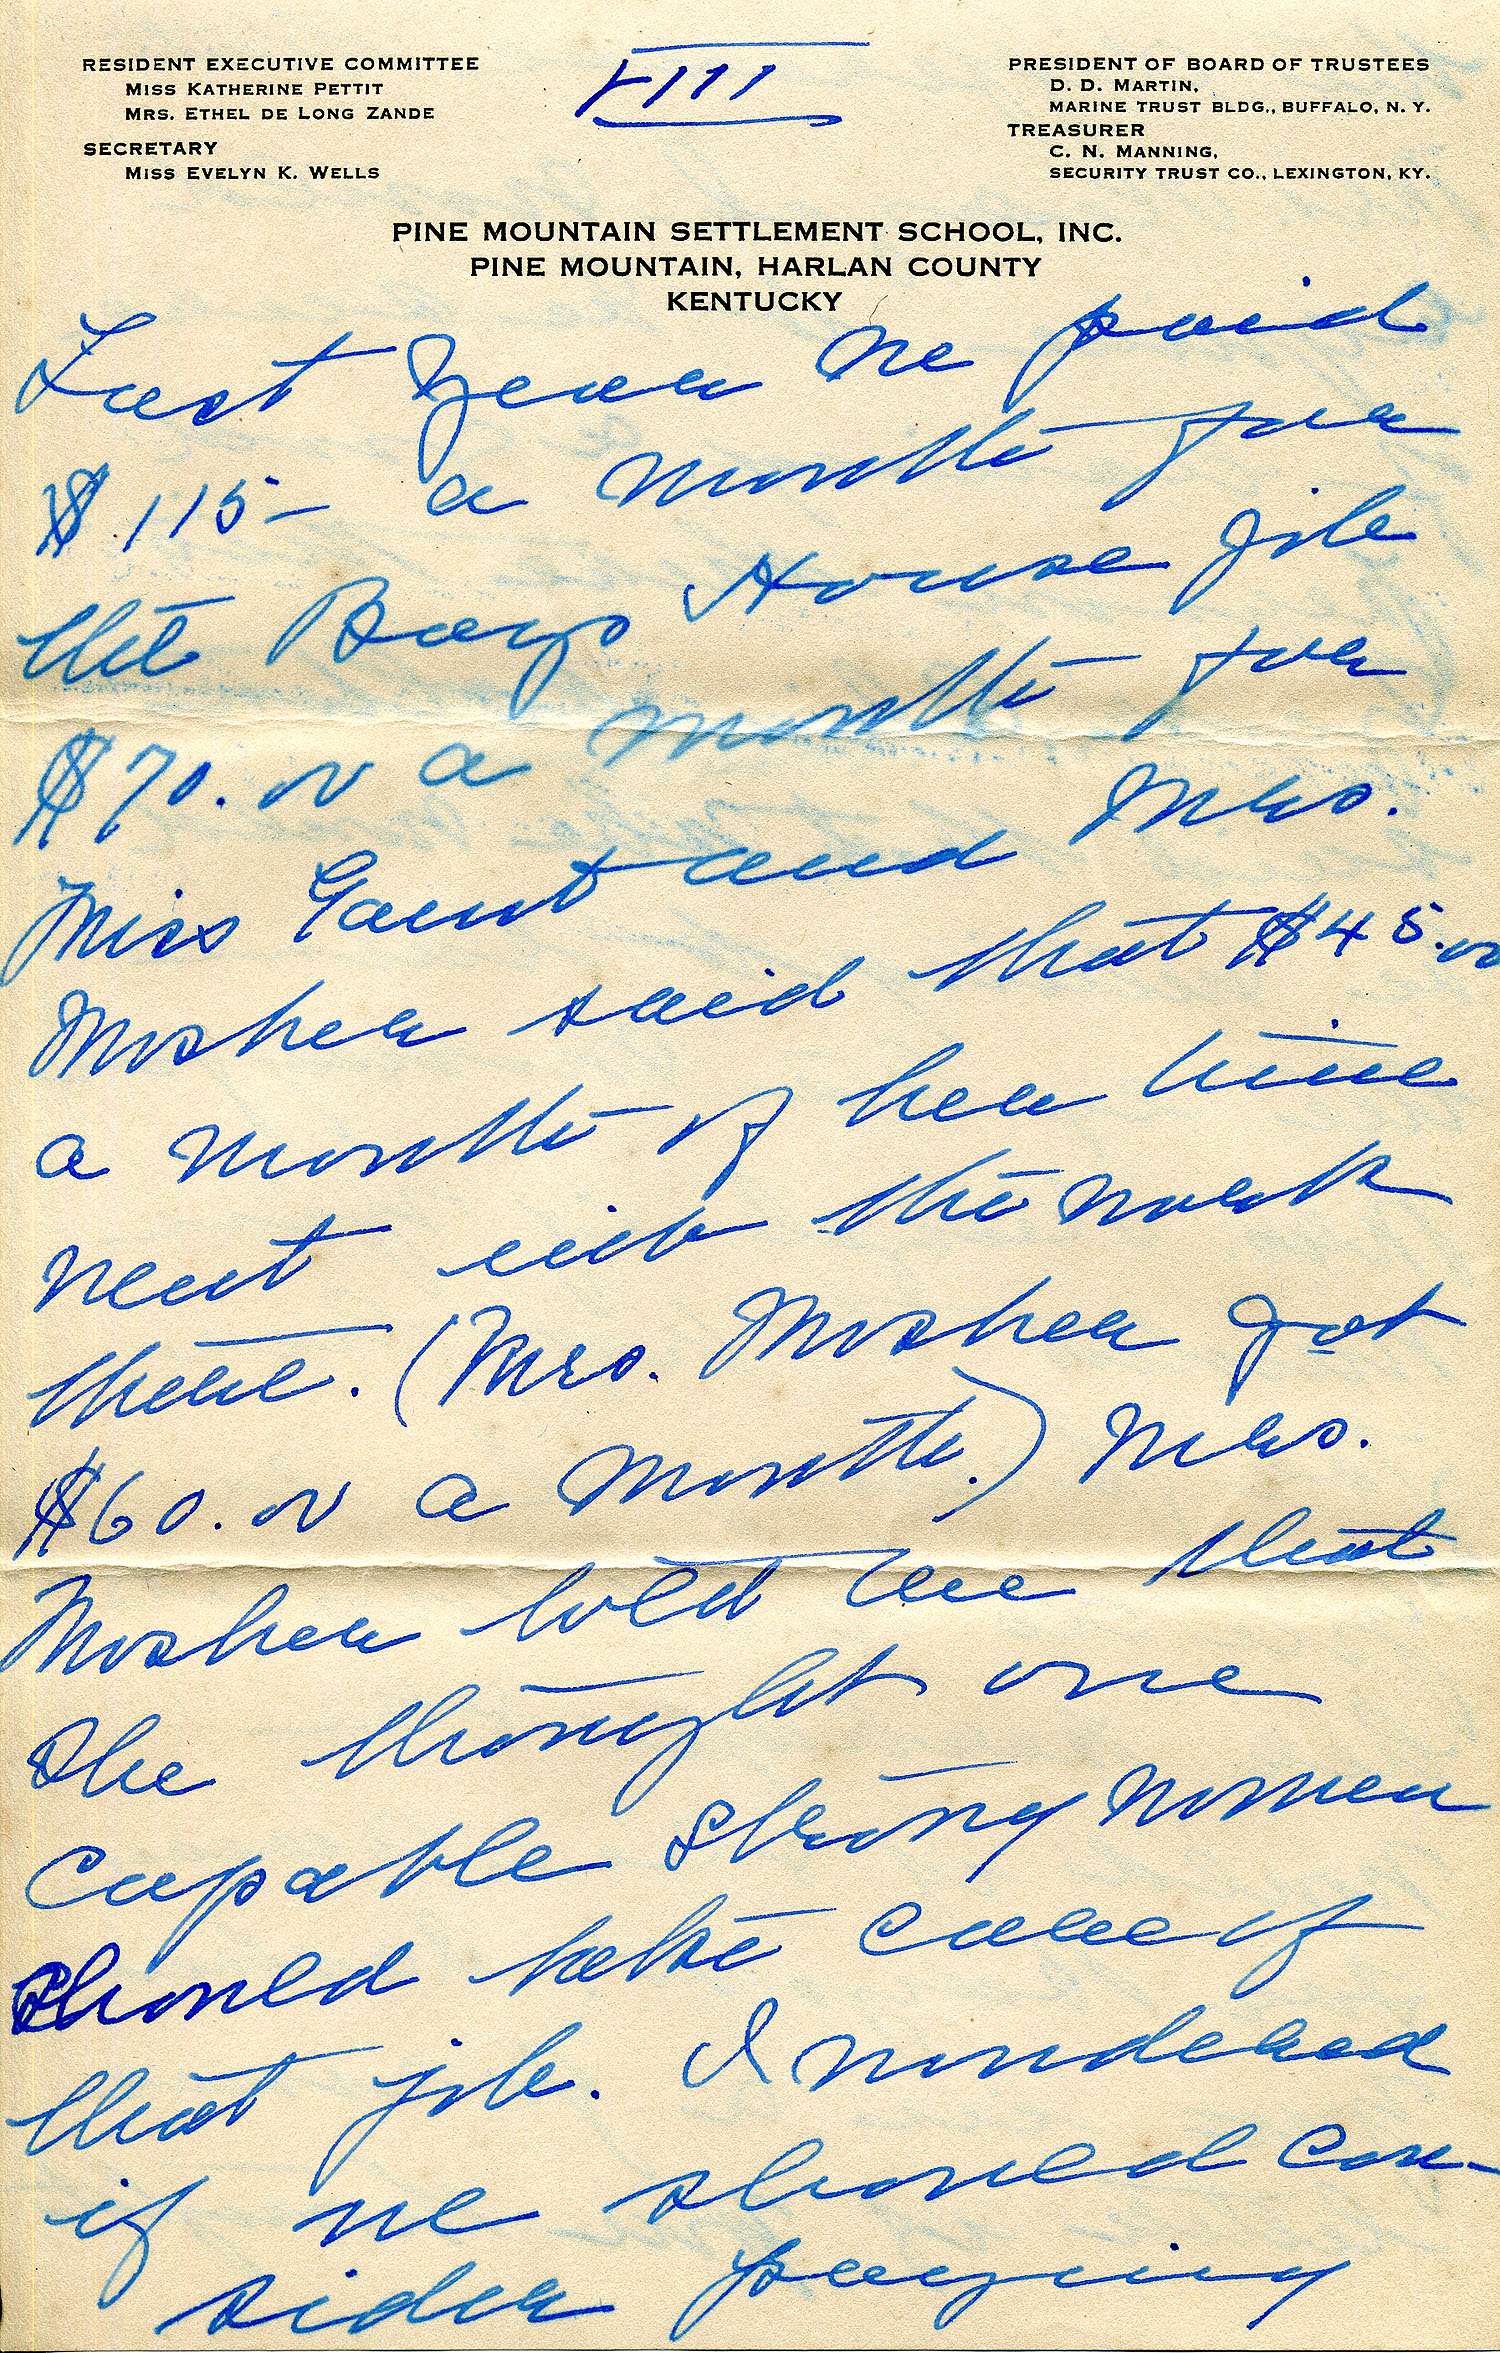 RESIDENT EXECUTIVE COMMITTEE
MISS KATHERINE PETTIT
MRS. ETHEL DE LONG ZANDE
SECRETARY
MISS EVELYN K. WELLS
VIII
PRESIDENT OF BOARD OF TRUSTEES
D. D. MARTIN,
MARINE TRUST BLDG., BUFFALO, N. Y.
TREASURER
C. N. MANNING,
SECURITY TRUST CO., LEXINGTON, KY.
PINE MOUNTAIN SETTLEMENT SCHOOL, INC.
PINE MOUNTAIN, HARLAN COUNTY
KENTUCKY
Last year we paid
$115– a month for
the Boys House job
$70.00 a month for
Miss Gaunt and Mrs.
Mosher said that $45.00
a month of her time
went into the work
there. (Mrs. Mosher got
$60.00 a month.) Mrs.
Mosher told me that
she thought one
capable strong women
should take care of
that job. I wondered
if we should con-
sider paying